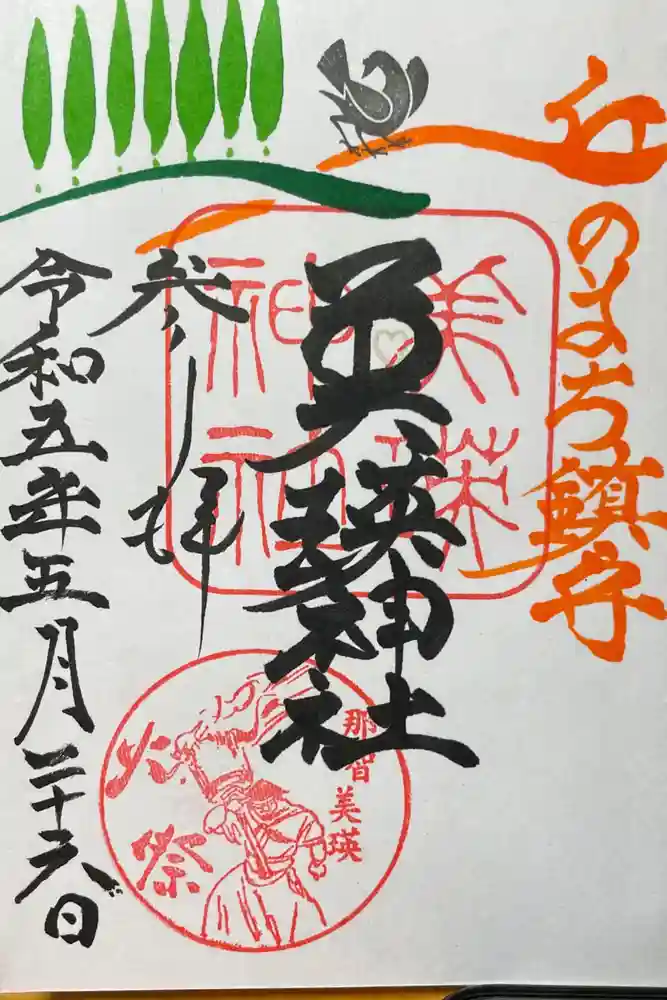 丘のまち鎮守
美瑛神社
美瑛
神社
参拝
令和五年五月二十六日
那智美瑛
火祭